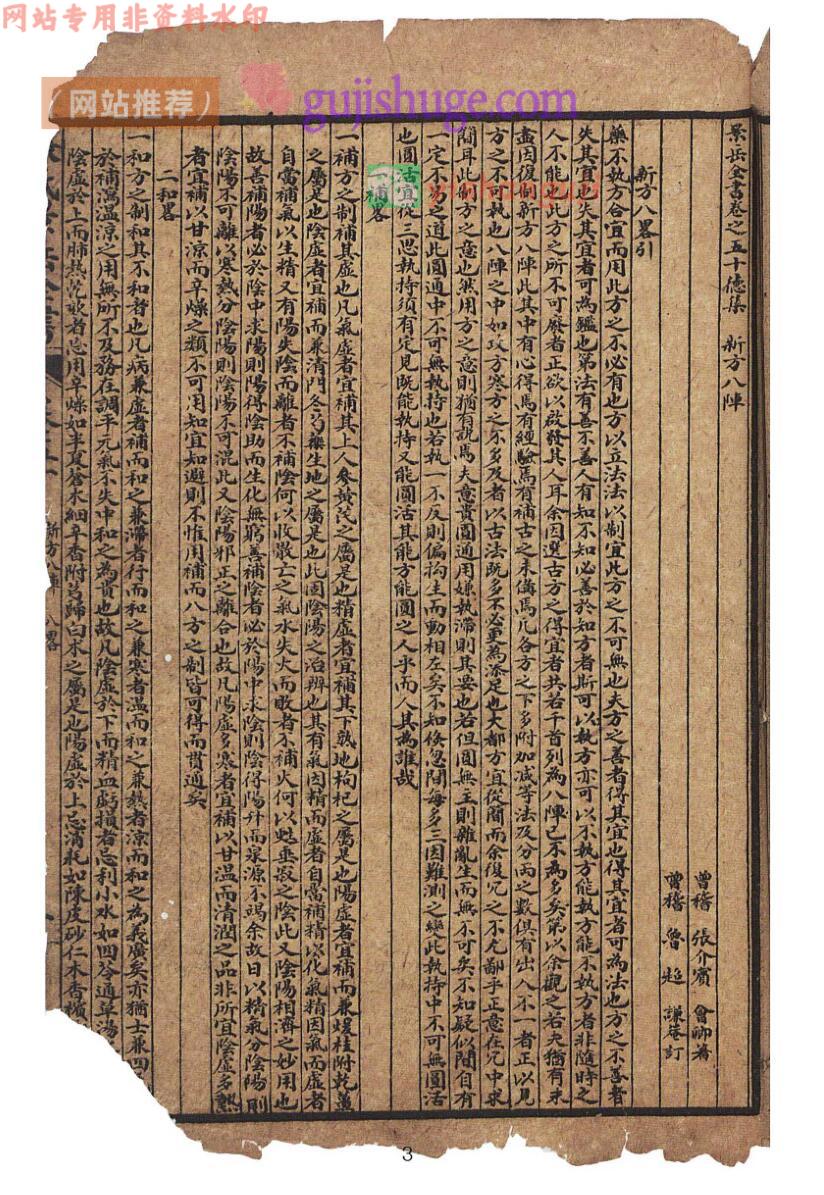 网站专用非资料水印
（网站推荐）
gujishuge.com
景岳全書卷之五十德集　新方八陣
會稽　張介賓　會卿著
會稽　魯超　謙菴訂
新方八畧引
藥不執方合宜而用此方之不必有也方以立法法以制宜此方之不可無也夫方之善者得其宜也得其宜者可為法也方之不善者
失其宜也失其宜者可為鑑也第法有善不善人有知不知必善於知方者斯可以執方亦可以不執方能執方能不執方者非隨時之
人不能也此方之所不可廢者正欲以啟發其人耳余因選古方之得宜者共若干首列為八陣已不為多矣第以余觀之若夫猶有未
盡因復制新方八陣此其中有心得焉有經驗焉有補古之未備焉凡各方之下多附加減等法及分兩之數俱有出入不一者正以見
方之不可執也八陣之中如攻方寒方之不多及者以古法既多不必更為添足也大都方宜從簡而余復冗之不尤鄙乎正意在冗中求
簡耳此制方之意也然用方之意則猶有說焉夫意貴圓通用嫌執滯則其要也若但圓無主則雜亂生而無不可矣不知疑似間自有
一定不易之道此圓通中不可無執持也若執一不反則偏拘生而動相左矣不知倏忽間每多三因難測之變此執持中不可無圓活
也圓活宜從三思執持須有定見既能執持又能圓活其能方能圓之人乎而人其為誰哉
一補畧
一補方之制補其虛也凡氣虛者宜補其上人參黃芪之屬是也精虛者宜補其下熟地枸杞之屬是也陽虛者宜補而兼煖桂附乾薑
之屬是也陰虛者宜補而兼清門冬芍藥生地之屬是也此固陰陽之治辨也其有氣因精而虛者自當補精以化氣精因氣而虛者
自當補氣以生精又有陽失陰而離者不補陰何以收散亡之氣水失火而敗者不補火何以甦垂寂之陰此又陰陽相濟之妙用也
故善補陽者必於陰中求陽則陽得陰助而生化無窮善補陰者必於陽中求陰則陰得陽升而泉源不竭余故曰以精氣分陰陽則
陰陽不可離以寒熱分陰陽則陰陽不可混此又陰陽邪正之離合也故凡陽虛多寒者宜補以甘温而清潤之品非所宜陰虛多熱
者宜補以甘凉而辛燥之類不可用知宜知避則不惟用補而八方之制皆可得而貫通矣
二和畧
一和方之制和其不和者也凡病兼虛者補而和之兼滯者行而和之兼寒者温而和之兼熱者凉而和之為義廣矣亦猶土兼四
於補瀉温凉之用無所不及務在調平元氣不失中和之為貴也故凡陰虛於下而精血虧損者忌利小水如四苓通草湯
陰虛於上而肺熱乾欬者忌用辛燥如半夏蒼朮細辛香附芎歸白朮之屬是也陽虛於上忌消耗如陳皮砂仁木香檳
新方八陣　八畧
3